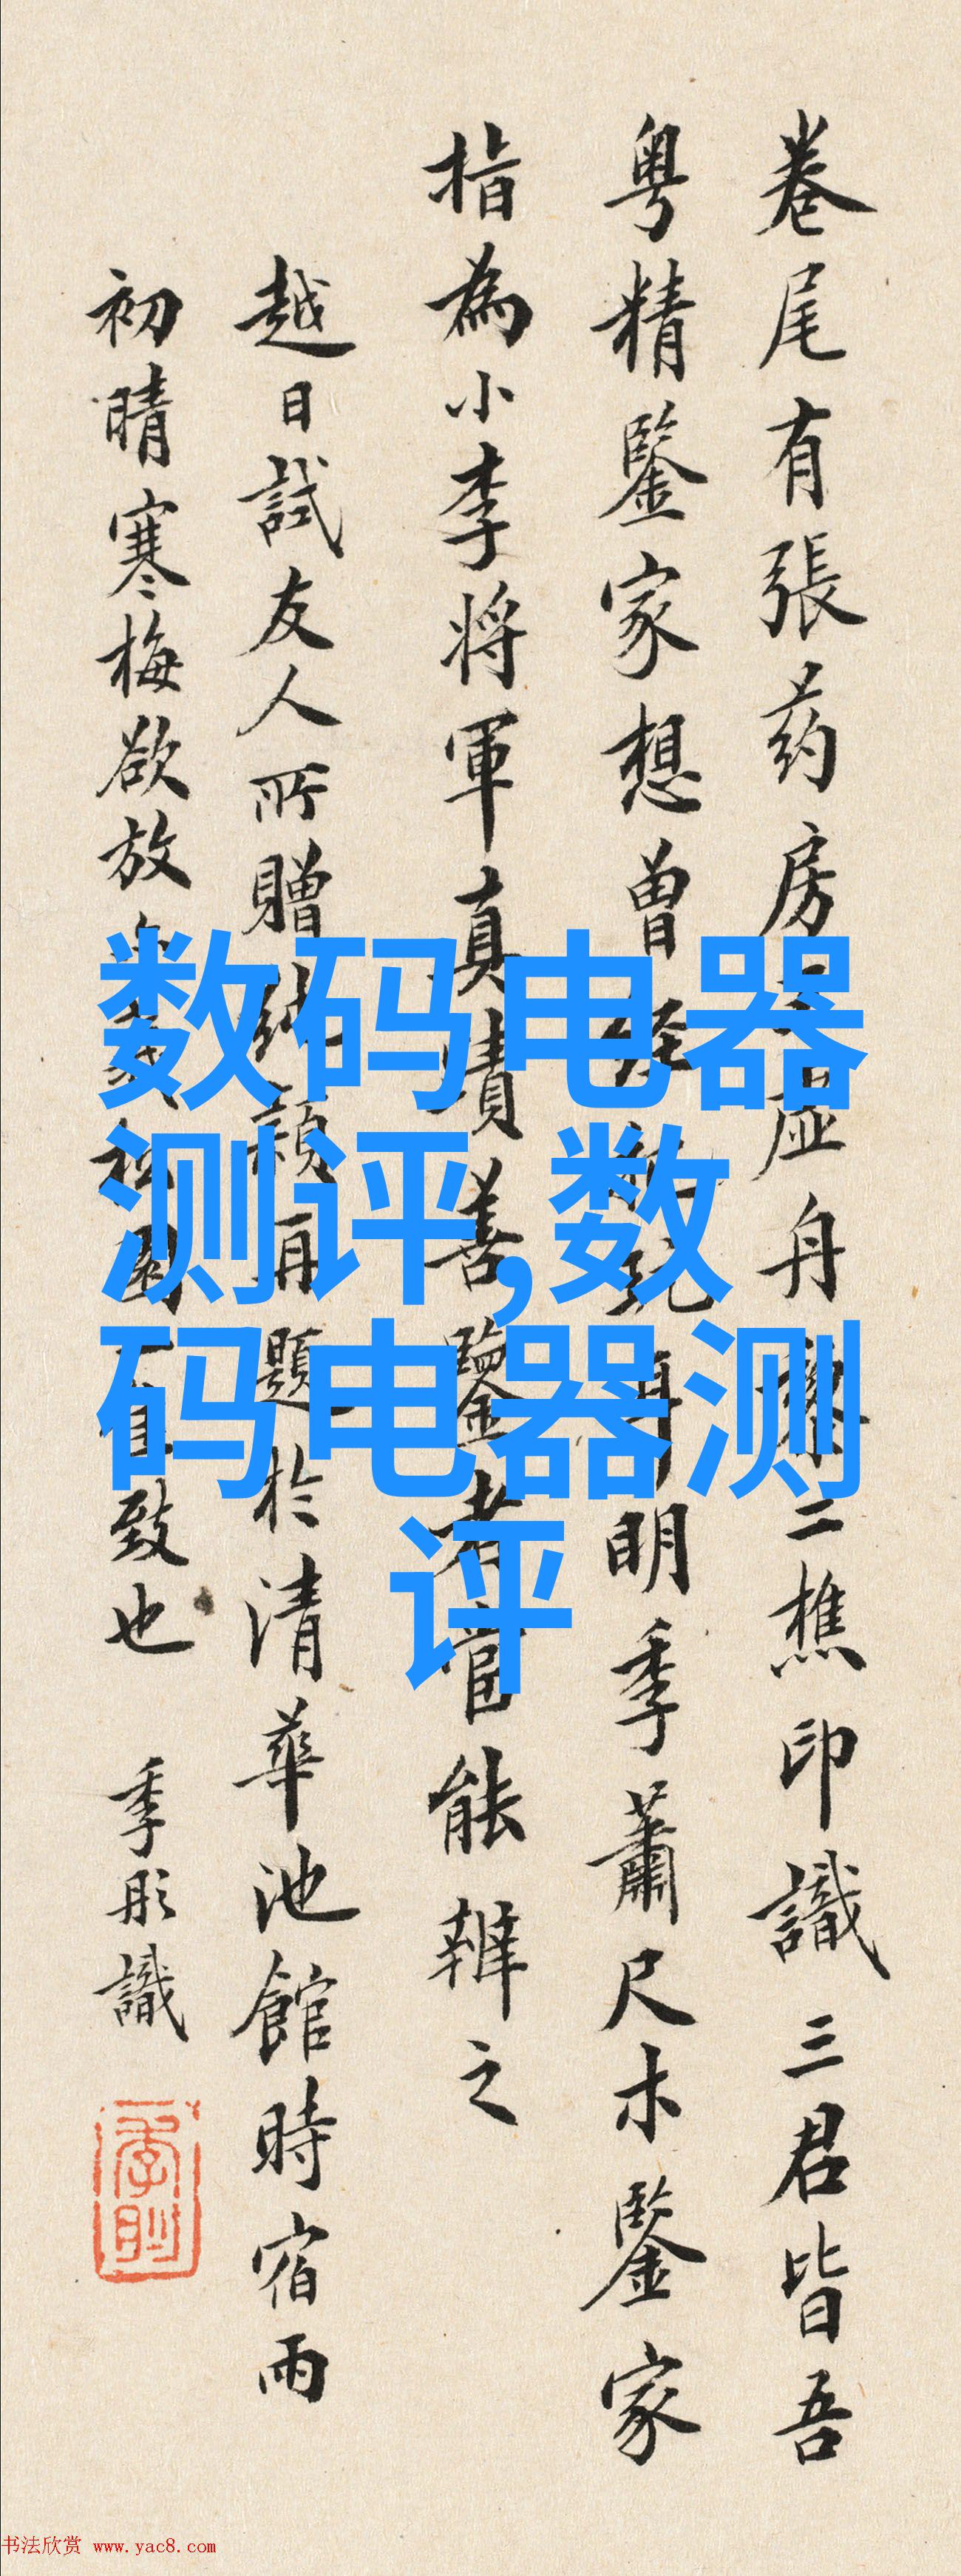 卷尾有張药房 虛舟 二樵印識三君皆吾
粤精鑒家想曾 明季蕭尺木鑒家
指為小李將軍真蹟善鑒者當能辨之
越日試友人所贈 穎再題於清華池館時宿雨
初晴寒梅欲放 致也 季彤識
数码电器
测评,数
码电器测
评
书法欣赏 www.yac8.com